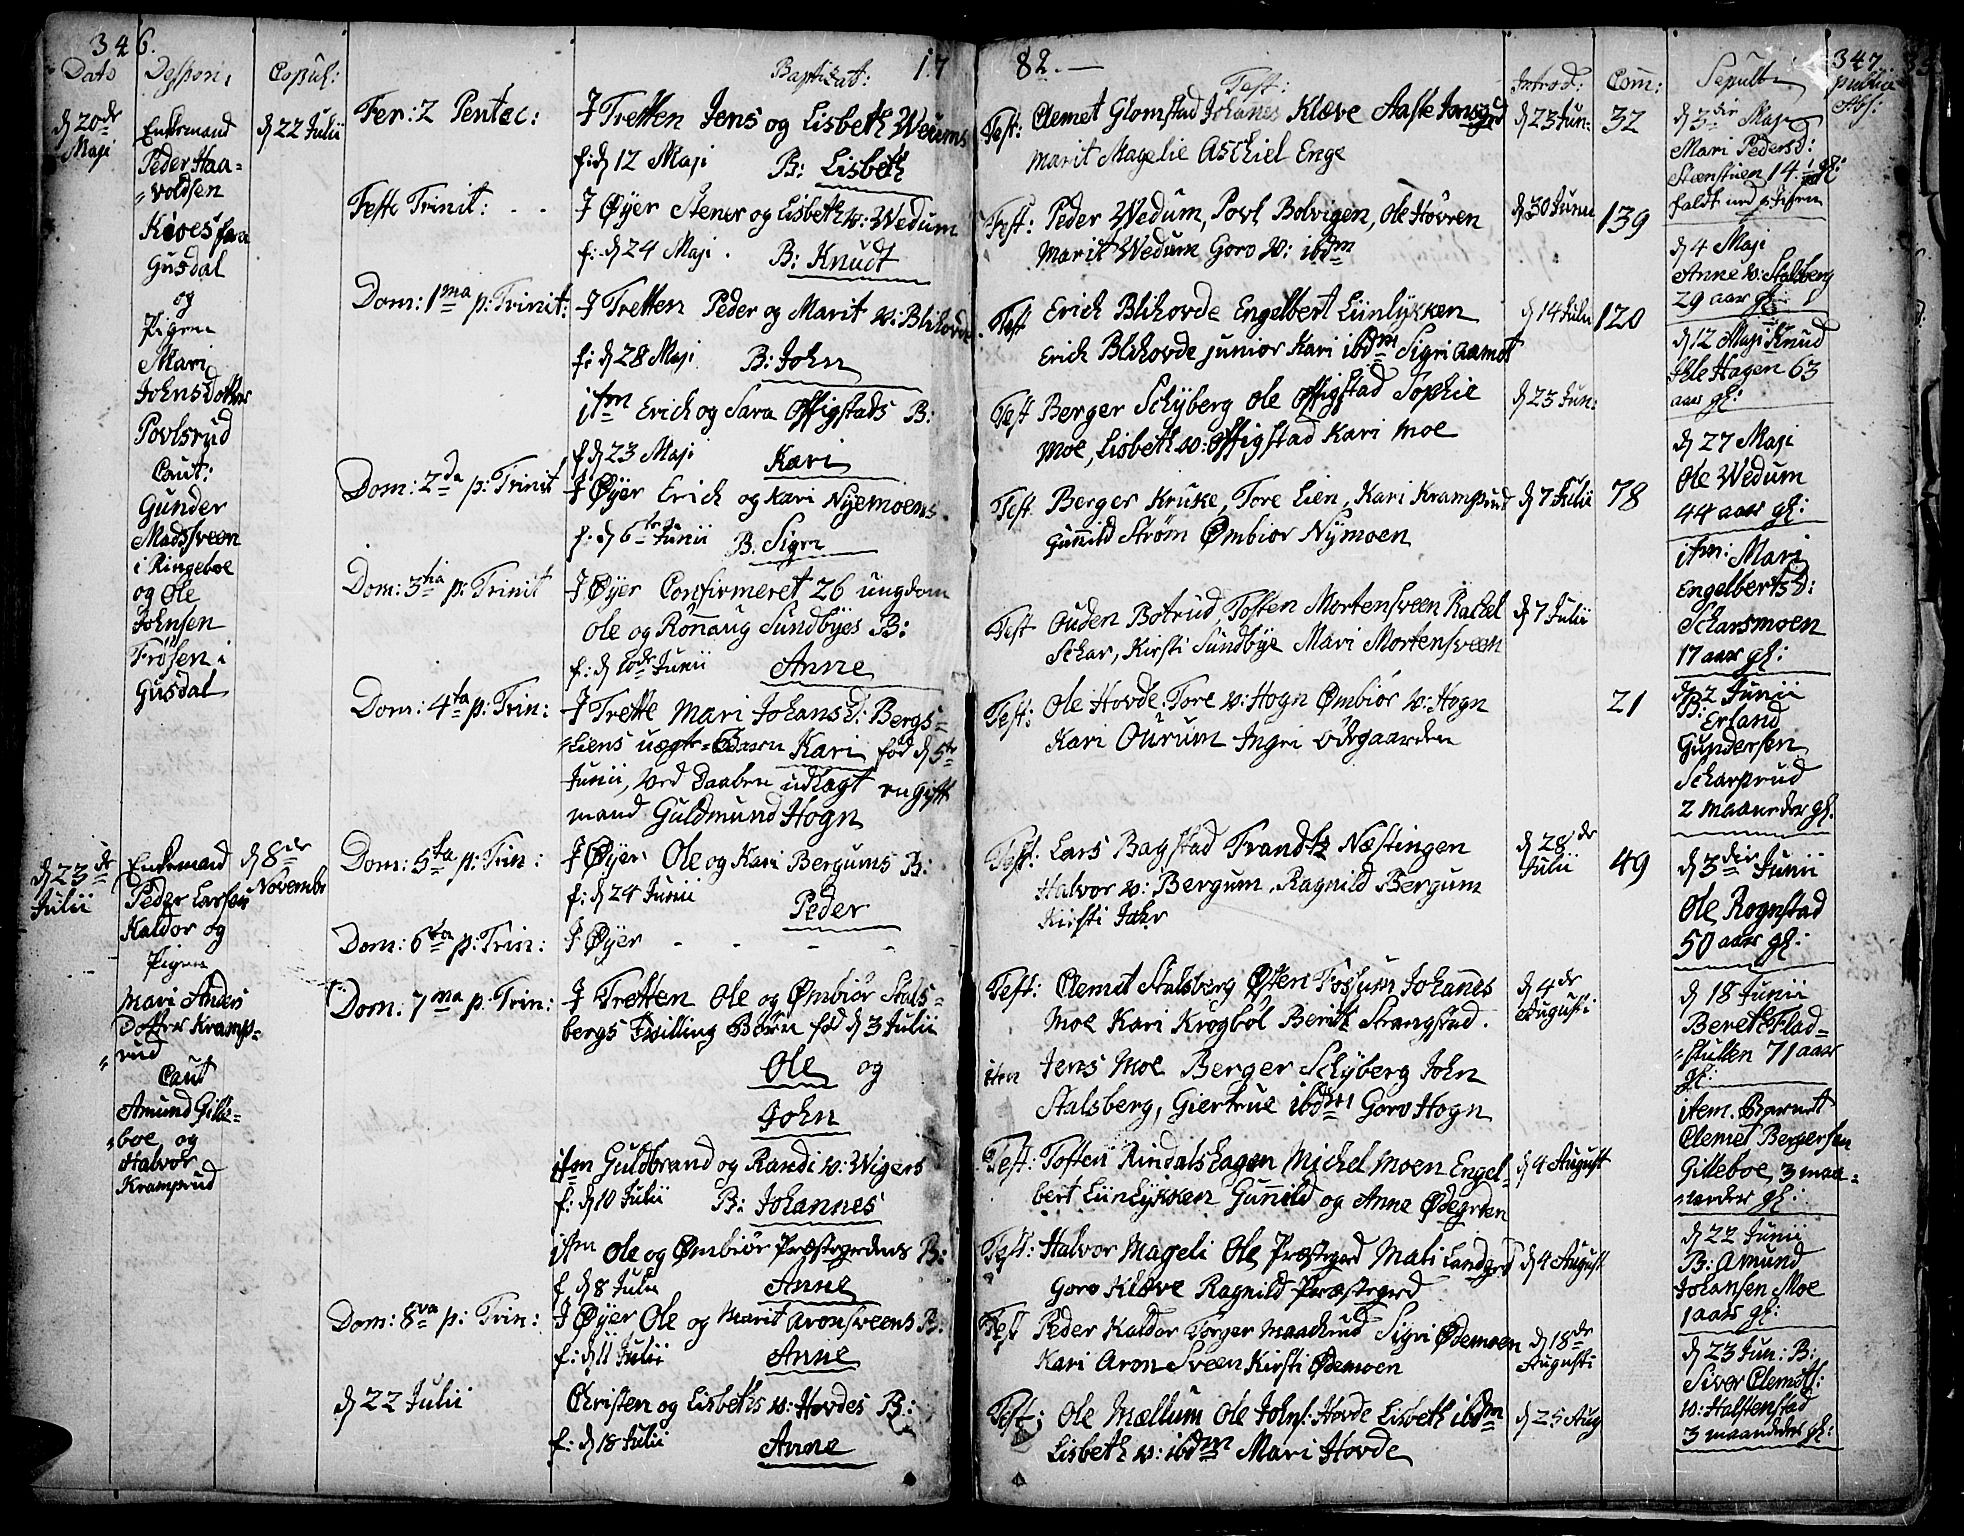 346.
Dato
Despon:
Copul:
Baptizat:
17
d 20de
Maji
Enkemand
Peder Haa=
=voldsen
Kioes fra
Gusdal
og
Pigen
Mari
Johnsdotter
Povlsrud
Caut:
Gunder
Madssveen
i Ringeboe
og Ole
Johnsen
Frösen i
Gusdal
d 22 Julii
d 23de
Julii
Enkemand
Peder Larsen
Kaldor og
Pigen
Mari Anders
Dotter Kramp=
=rud
Caut
Amund Gille=
=boe og
Halvor
Kramprud
d 8de
Novembr
Fer: 2 Pentec:
J Tretten Jens og Lisbeth Wedums
f: d 12 Maji B: Lisbeth
Festo Trinit: - -
J Øyer Stener og Lisbeth v: Wedum
f: d 24 Maji. B: Knudt
Dom: 1ma p: Trinit:
J Tretten Peder og Marit v: Blihovde
f: d 28 Maji B: John
itm Erich og Sara Offigstads B:
f d 23 Maji Kari
Dom: 2da p: Trinit
J Øyer Erich og Kari Nyemoens
f: d 6te Junii B: Sigri
Dom: 3tia p: Trinit
J Øyer Confirmeret 26 ungdom
Ole og Rönaug Sundbyes B:
f: d 10de Junii Anne
Dom: 4ta p: Trin:
J Trette Mari Johansd: Bergs=
=Liens uegte Baarn Kari fød d 5te
Junii, ved Daaben udlagt en gift
mand Guldmund Hogn
Dom: 5ta p: Trin:
J Øyer Ole og Kari Bergums B:
f: d 24 Junii Peder
Dom: 6ta p: Trin:
J Øyer - - - -
Dom: 7ma p: Trin:
J Tretten Ole og Ømbiör Stals=
bergs Twilling Børn fød d 3 Julii
Ole og
John
itm Guldbrand og Randi v: Wigers
f: d 10 Julii B: Johannes
itm Ole og Ømbiör Præstegrdens B:
f. d 8 Julii Anne
Dom: 8va p: Trin:
J Øyer Ole og Marit Aronsveens B:
f: d 11 Julii Anne
d 22 Julii
Christen og Lisbeths v: Hovdes B:
f: d 18 Julii Anne
82.-
Test:
Introd:
Com:
Sepult
347
publice
Abs:
Test: Clemet Glomstad Johanes Klæve Aaste Jonsgrd
Marit Magelie Aschiel Enge
d 23 Jun:
32
Test: Peder Wedum, Povl Bolvigen, Ole Hövren
Marit Wedum Goro v: ibdm
d 30 Junii
139
Test Erich Blihovde Engelbert Liinlykken
Erich Blihovde junior Kari ibdm Sigri Aamot
d 14 Julii
120
Test Berger Schyberg Ole Offigstad Sophie
Moe, Lisbeth v: Offigstad Kari Moe
d 23 Jun:
Test Berger Kruke, Tore Lien, Kari Kramprud
Gunild Strøm Ømbior Nymoen
d 7 Julii
78
Test Ouden Botrud, Tosten Mortensveen Rachel
Schar, Kirsti Sundbye Mari Mortensveen
d 7 Julii
Test: Ole Hovde Tore v: Hogn Ømbiör v: Hogn
Kari Öurum Ingri Ödegaarden
21
Test: Lars Bagstad Frandtz Næstingen
Halvor v: Bergum, Ragnild Bergum
Kirsti Jahr
d 28de
Julii
49
Test: Clemet Stalsberg Østen Fossum Johanes
Moe Kari Krogböl Berith Strangsrud.
d 4de
Augusti
item Jens Moe Berger Schyberg John
Stalsberg, Giertrue ibdm Goro Hogn
Test: Tosten Rindalshagen Michel Moen Engel=
bert Liinlykken Gunild og Anne Ødegrden
d 4 August
Test: Halvor Mageli Ole Præstegrd Mali Landgrd
Goro Klæve Ragnild Præstegrd
d 4 August
Test Peder Kaldor Torger Maaehrud Sigri Ødemoen
Kari Aron Sveen Kirsti Ødemoen
d 18de
Augusti
Test: Ole Mællum Ole Johns: Hovde Lisbeth ibdm
Lisbeth v: ibdm Mari Hovde
d 25 Aug
d 3die Maji
Mari Pedersd:
Steenstuen 14
faldt ned
d 4 Maji
Anne v: Stalsberg
29 aar gl:
d 12 Maji Knud
Ihle Hagen 63
aar gl:
d 27 Maji
Ole Wedum
44 aar gl:
itm: Mari
Engelbertsd:
Scharsmoen
17 aar gl:
d 2 Junii
B: Erland
Gundersen
Scharprud
2 maaneder gl.
d 3die Junii
Ole Rognstad
50 aar gl:
d 18 Junii
Bereth Flad=
=stulen 71 aar
gl:
item. Barnet
Clemet Bergersen
Gilleboe 3 maa=
=neder gl:
d 22 Junii
B: Amund
Johansen Moe
1 aar gl:
d 23 Jun: B:
Siver Clemets:
v: Halstenstad
3 maaneder gl: